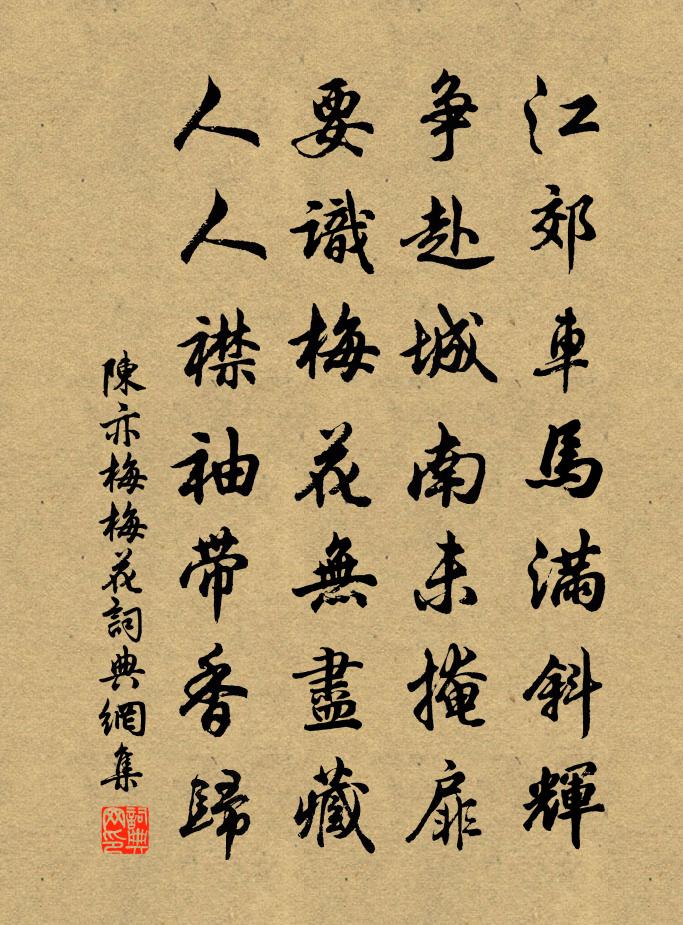 江郊車馬滿斜輝
争赴城南未掩扉
要識梅花無盡藏
人人襟袖帶香歸
陳亦梅梅花詞典網集
詞典网印